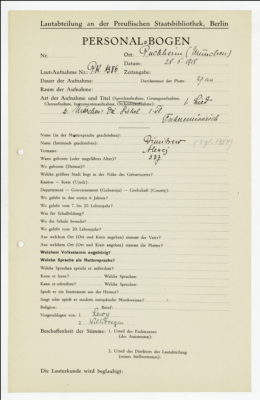 Lautabteilung an der Preußischen Staatsbibliothek, Berlin
PERSONAL-BOGEN
Nr. Ort: Puchheim (München)
Laut-Aufnahme Nr.: PK Zeitangabe:
Dauer der Aufnahme: Durchmesser der Platte: 27 cm
Raum der Aufnahme:
Art der Aufnahme und Titel (Sprechaufnahme, Gesangsaufnahme, 1. Lied
Choraufnahme, Instrumentenaufnahme, Orchesteraufnahme):
2. Märchen:
Name (in der Muttersprache geschrieben):
Name (lateinisch geschrieben): Dimitrow
Vorname: Alexej
Wann geboren (oder ungefähres Alter)?
Wo geboren (Heimat)?
Welche größere Stadt liegt in der Nähe des Geburtsortes?
Kanton — Kreis (Ujezd):
Department — Gouvernement (Gubernija) — Grafschaft (County):
Wo gelebt in den ersten 6 Jahren?
Wo gelebt vom 7. bis 20. Lebensjahr?
Was für Schulbildung?
Wo die Schule besucht?
Wo gelebt vom 20. Lebensjahr?
Aus welchem Ort (Ort und Kreis angeben) stammt der Vater?
Aus welchem Ort (Ort und Kreis angeben) stammt die Mutter?
Welchem Volksstamm angehörig?
Welche Sprache als Muttersprache?
Welche Sprachen spricht er außerdem?
Kann er lesen? Welche Sprachen?
Kann er schreiben? Welche Sprachen?
Spielt er ein Instrument aus der Heimat?
Singt oder spielt er moderne europäische Musikweisen?
Religion: Beruf:
Vorgeschlagen von: 1.
2.
Beschaffenheit der Stimme: 1. Urteil des Fachmannes
(des Assistenten):
2. Urteil des Direktors der Lautabteilung
(seines Stellvertreters):
Die Lauturkunde wird beglaubigt: